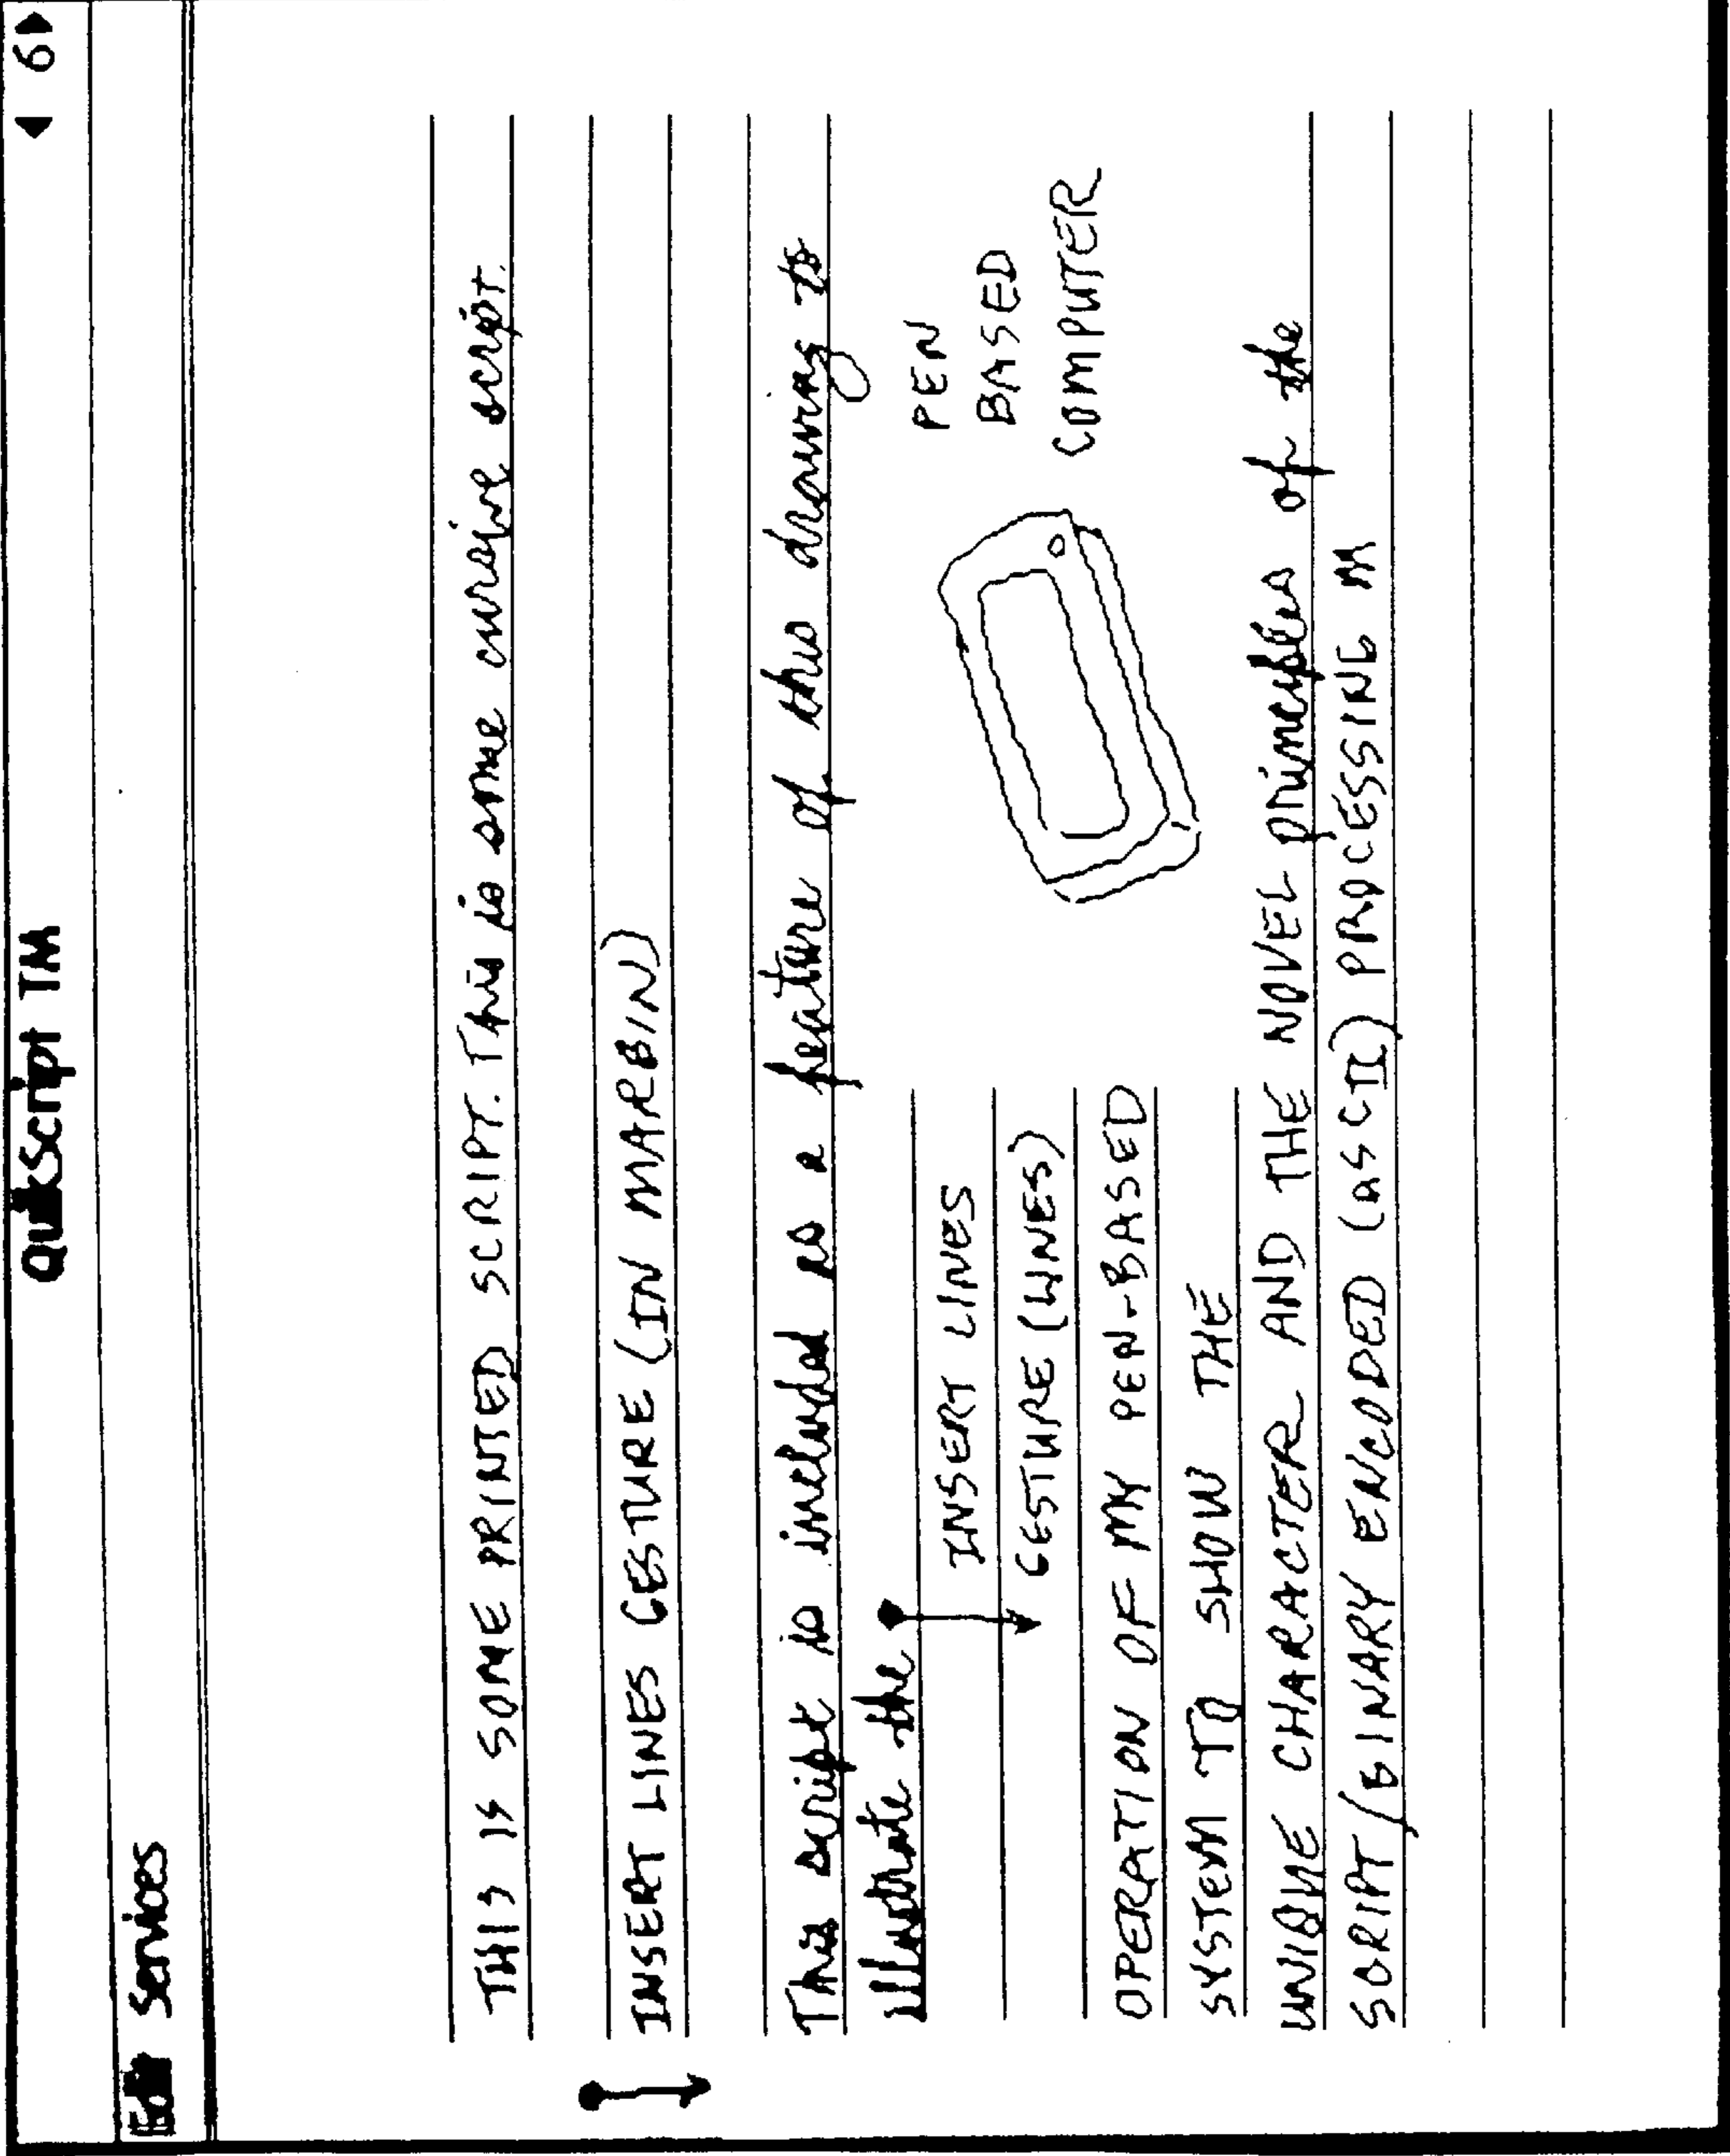 QuikScript TM
◀ 6 ▶
Edit Services
THIS IS SOME PRINTED SCRIPT. This is some cursive script.
INSERT LINES GESTURE (IN MARGIN)
This script is included as a feature of this drawing to
illustrate the
INSERT LINES
GESTURE (LINES)
OPERATION OF MY PEN-BASED
SYSTEM TO SHOW THE
PEN
BASED
COMPUTER
UNIQUE CHARACTER AND THE NOVEL principles of the
SCRIPT/BINARY ENCODED (ASCII) PROCESSING M